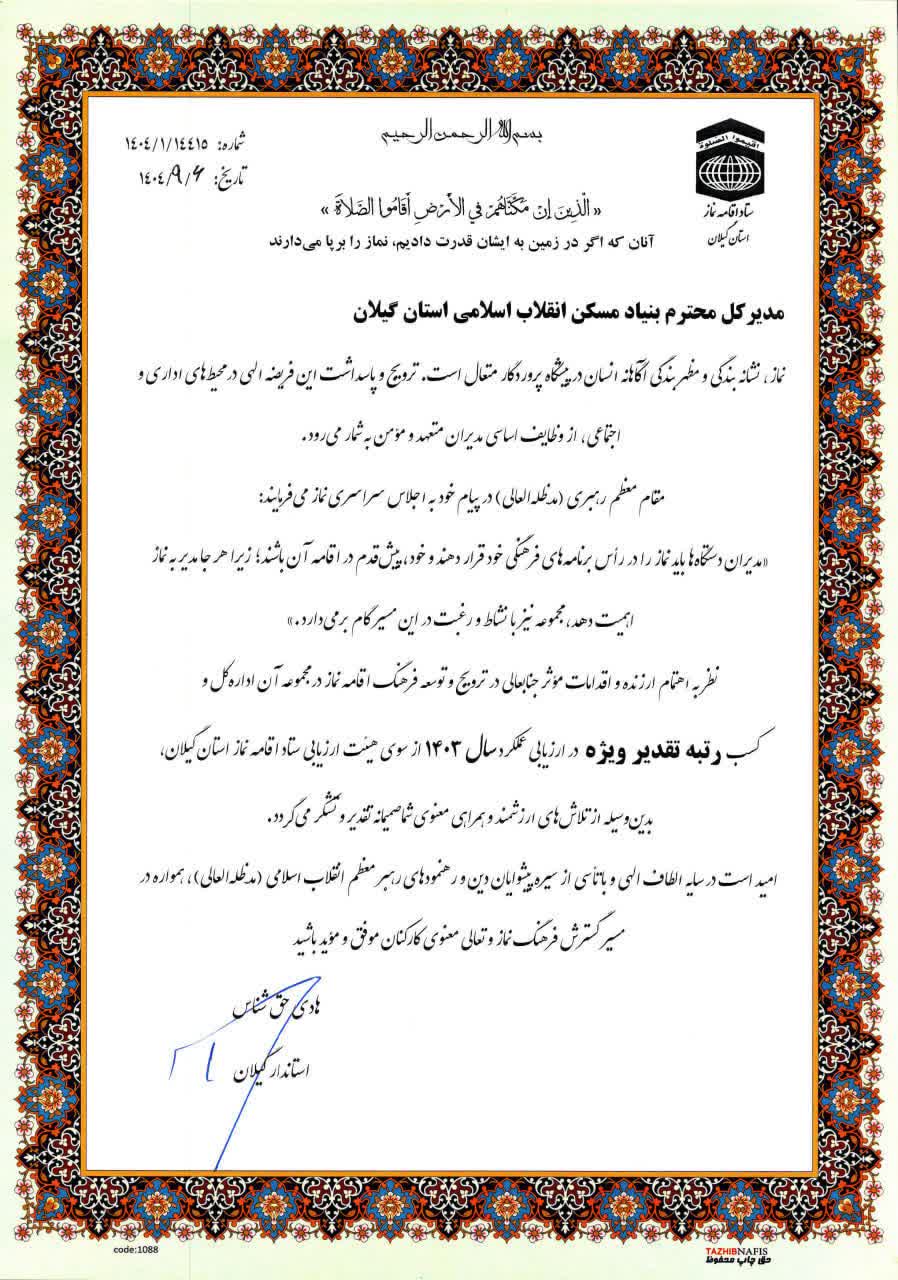 بسم الله الرحمن الرحیم
شماره: ۱۴۰۴/۱/۱۴۴۱۵
تاریخ: ۱۴۰۴/۹/۶
اقیموا الصلوة
ستاد اقامه نماز
استان گیلان
« الَّذِينَ إِنْ مَكَّنَّاهُمْ فِي الْأَرْضِ أَقَامُوا الصَّلَاةَ »
آنان که اگر در زمین به ایشان قدرت دادیم، نماز را برپا می‌دارند
مدیرکل محترم بنیاد مسکن انقلاب اسلامی استان گیلان
نماز، نشانه بندگی و مظهر بندگی آگاهانه انسان در پیشگاه پروردگار متعال است. ترویج و پاسداشت این فریضه الهی در محیط‌های اداری و
اجتماعی، از وظایف اساسی مدیران متعهد و مؤمن به شمار می‌رود.
مقام معظم رهبری (مدظله‌العالی) در پیام خود به اجلاس سراسری نماز می‌فرمایند:
«مدیران دستگاه‌ها باید نماز را در رأس برنامه‌های فرهنگی خود قرار دهند و خود، پیش‌قدم در اقامه آن باشند؛ زیرا هر جا مدیر به نماز
اهمیت دهد، مجموعه نیز با نشاط و رغبت در این مسیر گام برمی‌دارد.»
نظر به اهتمام ارزنده و اقدامات مؤثر جنابعالی در ترویج و توسعه فرهنگ اقامه نماز در مجموعه آن اداره‌کل و
کسب رتبه تقدیر ویژه در ارزیابی عملکرد سال ۱۴۰۳ از سوی هیئت ارزیابی ستاد اقامه نماز استان گیلان،
بدین‌وسیله از تلاش‌های ارزشمند و همراهی معنوی شما صمیمانه تقدیر و تشکر می‌گردد.
امید است در سایه الطاف الهی و با تأسی از سیره پیشوایان دین و رهنمودهای رهبر معظم انقلاب اسلامی (مدظله‌العالی)، همواره در
مسیر گسترش فرهنگ نماز و تعالی معنوی کارکنان موفق و مؤید باشید
هادی حق شناس
استاندار گیلان
code:1088
TAZHIBNAFIS
حق چاپ محفوظ